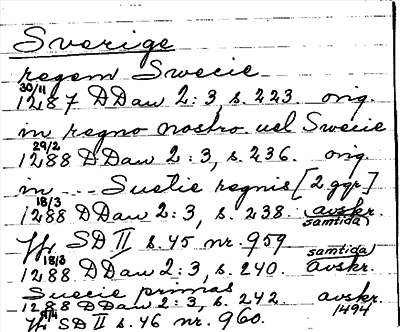 Sverige
regem Swecie
30/11
1287 DDan 2:3, s. 223. orig.
in regno nostro uel Swecie
29/2
1288 DDan 2:3, s. 236. orig.
in --- Suetie regnis [2 ggr.]
18/3
1288 DDan 2:3, s. 238. avskr.
samtida
Jfr SD II s. 45 nr. 959
18/3 samtida
1288. DDan 2:3, s. 240. avskr.
Suecie primas
1288 DDan 2:3, s. 242. avskr.
1494
Jfr SD II s. 46 nr. 960.